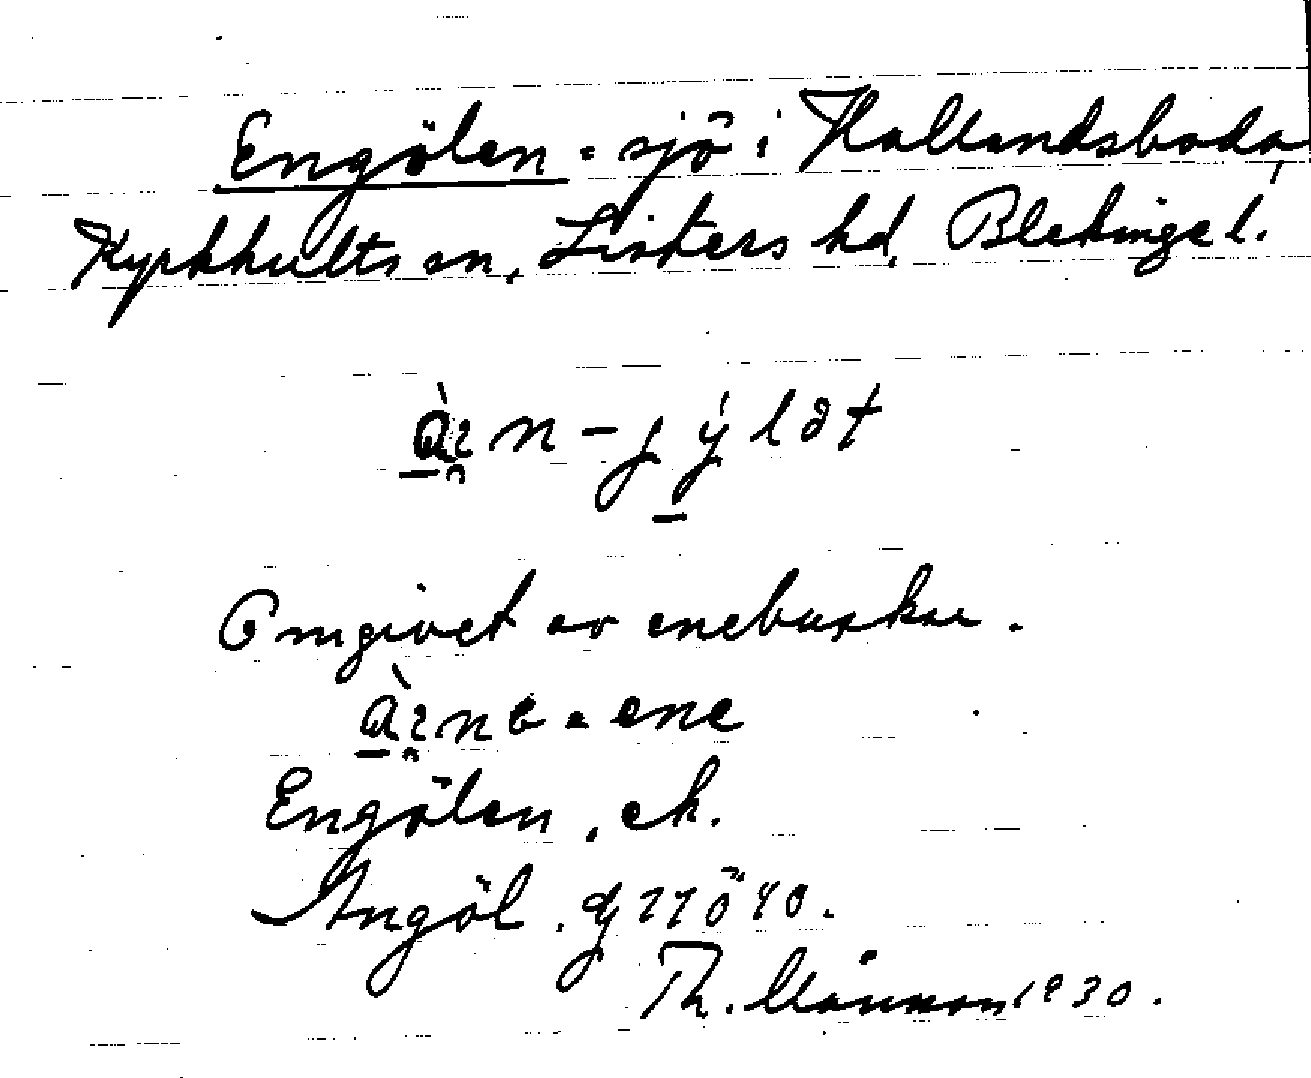 Engölen = sjö i Hallandsboda,
Kyrkhults sn, Listers hd, Blekinge l.
n - j ý l ə t
Omgivet av enebuskar.
= ene
Engölen, ek.
Angöl. gj 77ö40.
Th. 1930.